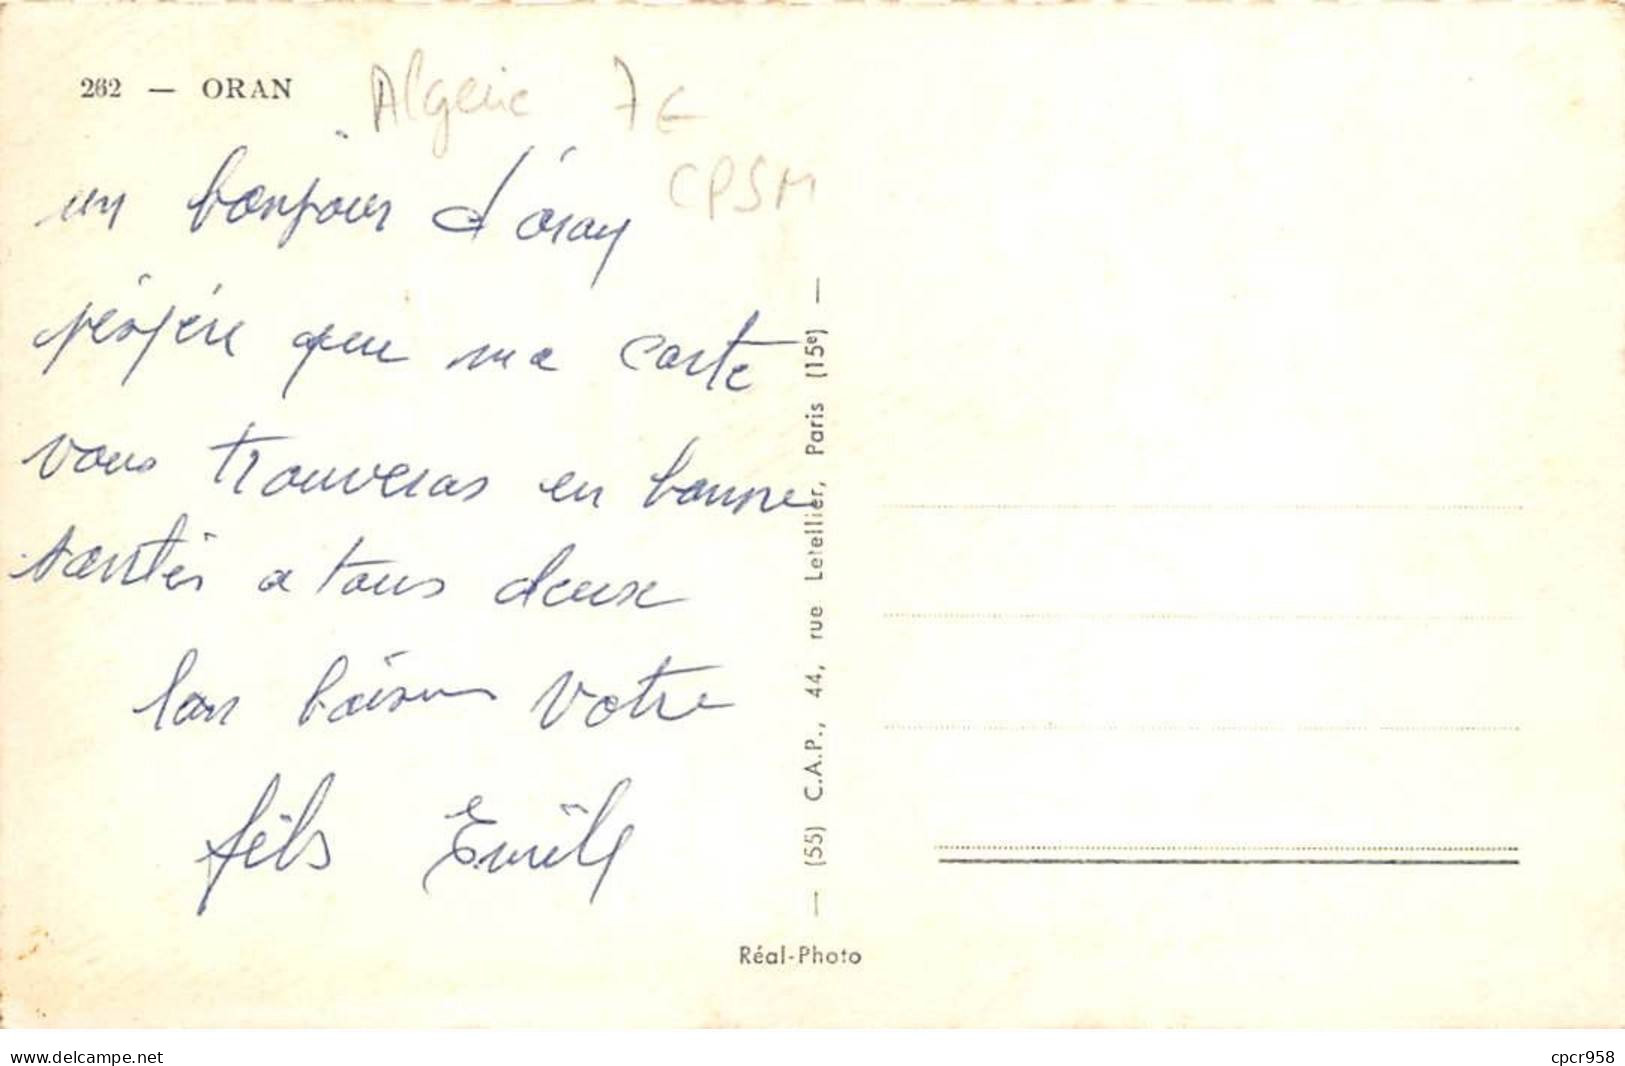 262 — ORAN
Algerie 7€
CPSM
un bonjour d'oran
j'éspére que ma carte
vous trouveras en bonne
santés a tous deux
bon baisers votre
fils Emile
— (55) C.A.P., 44, rue Letellier, Paris (15e) —
Réal-Photo
www.delcampe.net
cpcr958